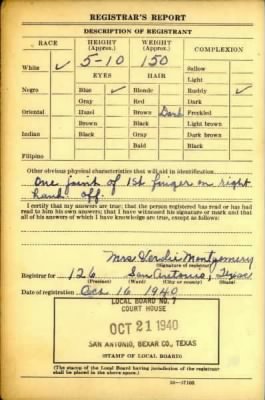 REGISTRAR'S REPORT
DESCRIPTION OF REGISTRANT
RACE
HEIGHT (Approx.)
WEIGHT (Approx.)
COMPLEXION
White ✓
5-10
150
Sallow
EYES
HAIR
Light
Negro
Blue ✓
Blonde
Ruddy ✓
Gray
Red
Dark
Oriental
Hazel
Brown Dark
Freckled
Brown
Black
Light brown
Indian
Black
Gray
Dark brown
Bald
Black
Filipino
Other obvious physical characteristics that will aid in identification
One joint of 1st finger on right
hand off.
I certify that my answers are true; that the person registered has read or has had
read to him his own answers; that I have witnessed his signature or mark and that
all of his answers of which I have knowledge are true, except as follows:
Mrs Verdie Montgomery
(Signature of registrar)
Registrar for 126 San Antonio, Texas
(Precinct) (Ward) (City or county) (State)
Date of registration Oct 16 1940
LOCAL BOARD NO. 7
COURT HOUSE
OCT 21 1940
SAN ANTONIO, BEXAR CO., TEXAS
(STAMP OF LOCAL BOARD)
(The stamp of the Local Board having jurisdiction of the registrant
shall be placed in the above space.)